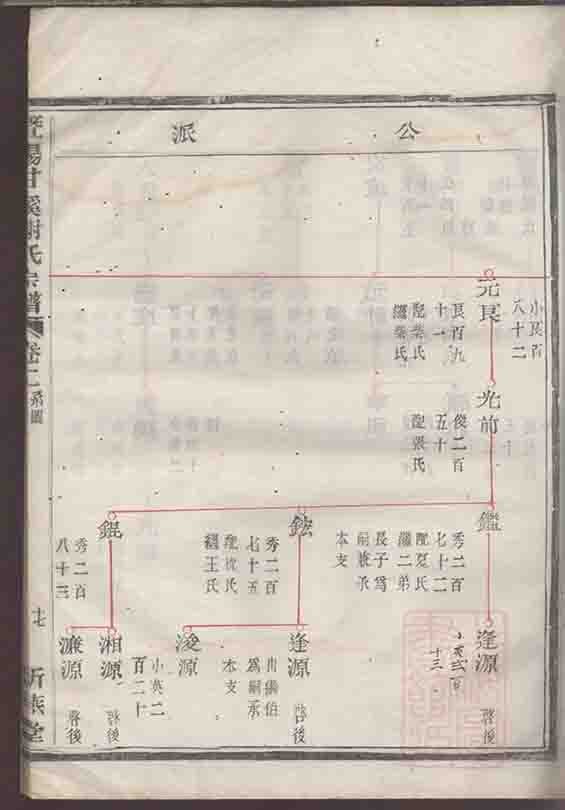 公派
小良百
八十二
元良
良百九
十一
配柴氏
繼柴氏
光前
俊二百
五十
配張氏
鑑
秀二百
七十二
配夏氏
繼二弟
長子爲
嗣兼承
本支
逢源
十三
啓後
鉉
秀二百
七十五
配沈氏
繼王氏
逢源
啓後
出繼伯
爲嗣承
本支
浚源
錕
秀二百
八十三
湘源
小英二
百二十
啓後
濂源
啓後
暨陽甘溪謝氏宗譜
卷二
系圖
十七